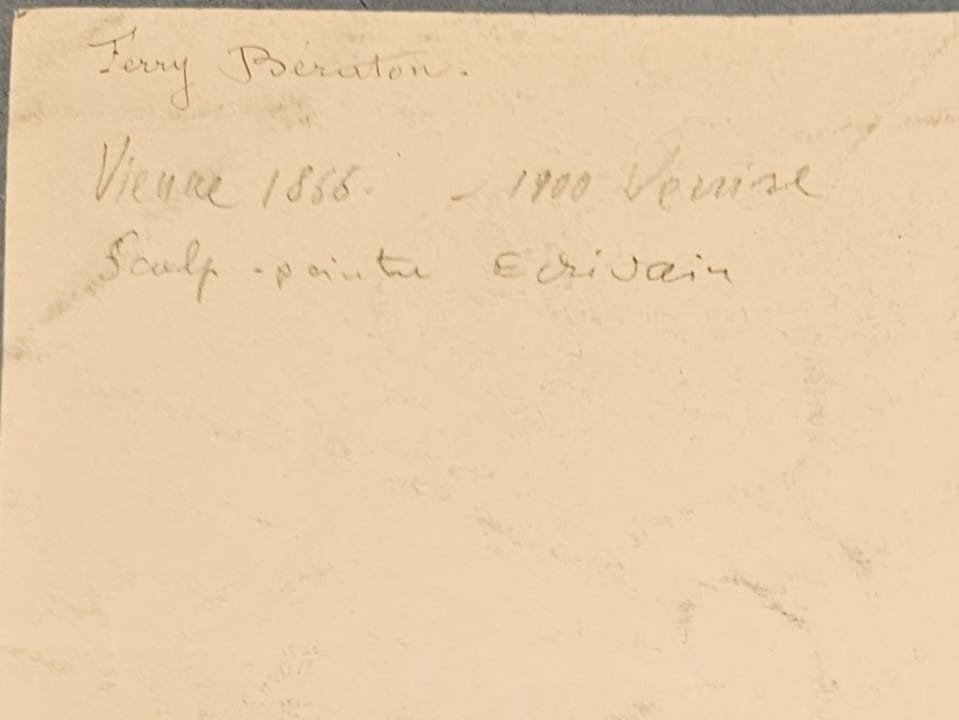 Ferry Bératon.
Vienne 1866. - 1900 Venise
Sculp - peintre Ecrivain